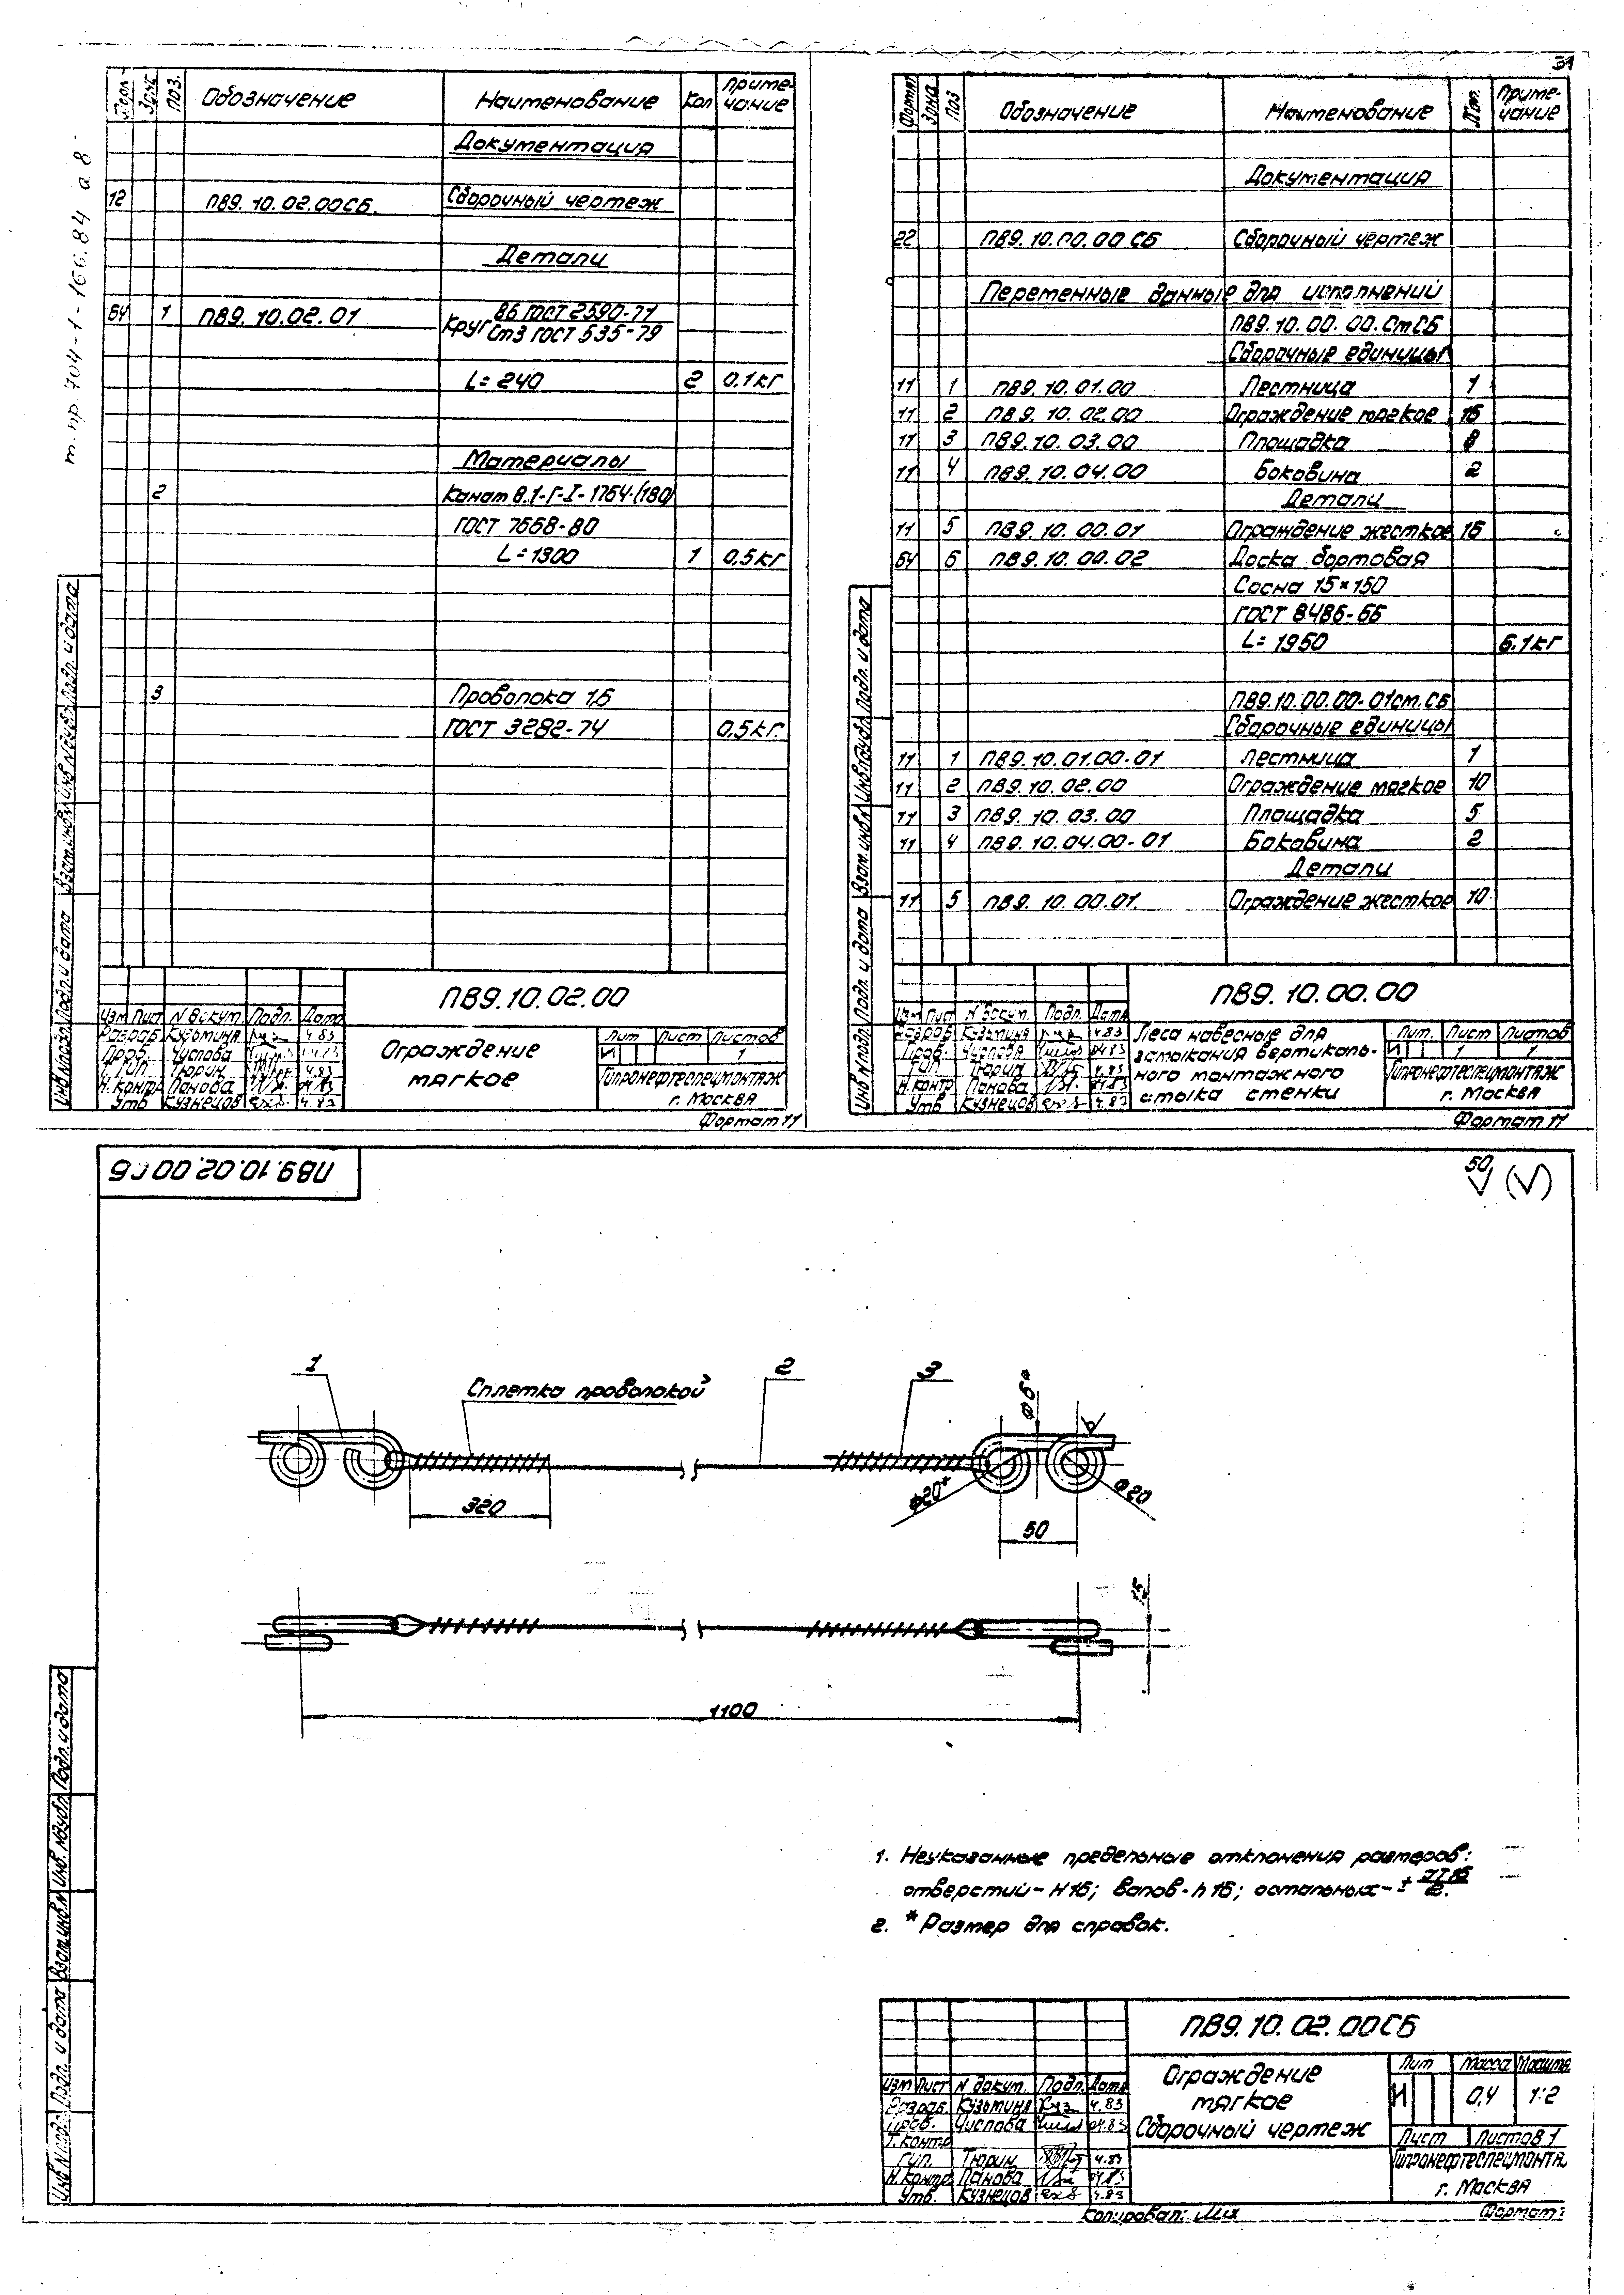 31
т.пр 704-1-166.84 а 8
Форм. Зона Поз. Обозначение Наименование Кол Приме-чание
Документация
12 П89.10.02.00СБ. Сборочный чертеж
Детали
64 1 П89.10.02.01 Круг В6 ГОСТ 2590-71
Ст3 ГОСТ 535-79
L=240 2 0.1кг
Материалы
2 Канат 8.1-Г-I-1764-(180)
ГОСТ 7668-80
L=1300 1 0,5кг
3 Проволока 1,6
ГОСТ 3282-74 0,5кг.
П89.10.02.00
Изм Лист N докум. Подп. Дата
Разраб Кузьмина 4.83
Пров. Числова 04.83
ГИП Тюрин 4.83
Н.контр Панова 04.83
Утв Кузнецов 4.83
Ограждение
мягкое
Лит Лист Листов
И 1
Гипронефтеспецмонтаж
г. Москва
Формат 11
Инв N подл. Подп. и дата Взам.инв.N Инв.N дубл. Подп. и дата
Формат Зона Поз Обозначение Наименование Кол. Приме-чание
Документация
22 П89.10.00.00 СБ Сборочный чертеж
Переменные данные для исполнений
П89.10.00.00.СтСБ
Сборочные единицы
11 1 П89.10.01.00 Лестница 1
11 2 П89.10.02.00 Ограждение мягкое 16
11 3 П89.10.03.00 Площадка 8
11 4 П89.10.04.00 Боковина 2
Детали
11 5 П89.10.00.01 Ограждение жесткое 16
64 6 П89.10.00.02 Доска бортовая
Сосна 15×150
ГОСТ 8486-66
L=1950 6.1кг
П89.10.00.00-01ст.СБ
Сборочные единицы
11 1 П89.10.01.00-01 Лестница 1
11 2 П89.10.02.00 Ограждение мягкое 10
11 3 П89.10.03.00 Площадка 5
11 4 П89.10.04.00-01 Боковина 2
Детали
11 5 П89.10.00.01. Ограждение жесткое 10
П89.10.00.00
Изм Лист N докум. Подп. Дата
Разраб Кузьмина 4.83
Пров. Числова 04.83
ГИП Тюрин 4.83
Н.контр Панова 04.83
Утв Кузнецов 4.83
Леса навесные для
замыкания вертикаль-
ного монтажного
стыка стенки
Лит. Лист Листов
И 1 1
Гипронефтеспецмонтаж
г. Москва
Формат 11
Инв N подл. Подп. и дата Взам.инв.N Инв.N дубл. Подп. и дата
П89.10.02.00СБ
50
1
Сплетка проволокой
2
3
Ф6*
Ф20*
Ф20
320
50
1100
1. Неуказанные предельные отклонения размеров:
отверстий-H16; валов-h16; остальных-± IT16/2.
2. * Размер для справок.
П89.10.02.00СБ
Изм Лист N докум. Подп. Дата
Разраб. Кузьмина 4.83
Пров. Числова 04.83
Т.контр
Гип. Тюрин 4.83
Н.контр Панова 04.83
Утв. Кузнецов 4.83
Ограждение
мягкое
Сборочный чертеж
Лит Масса Масштаб
И 0,4 1:2
Лист Листов 1
Гипронефтеспецмонтаж
г. Москва
Копировал:
Формат:
Инв N подл. Подп. и дата Взам.инв.N Инв.N дубл. Подп. и дата